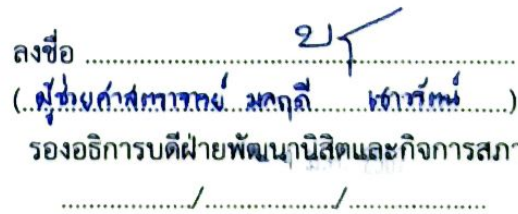 ลงชื่อ ....................................................
(..ผู้ช่วยศาสตราจารย์ มลฤดี เชาวรัตน์........)
รองอธิการบดีฝ่ายพัฒนานิสิตและกิจการสภา
................../................../..................